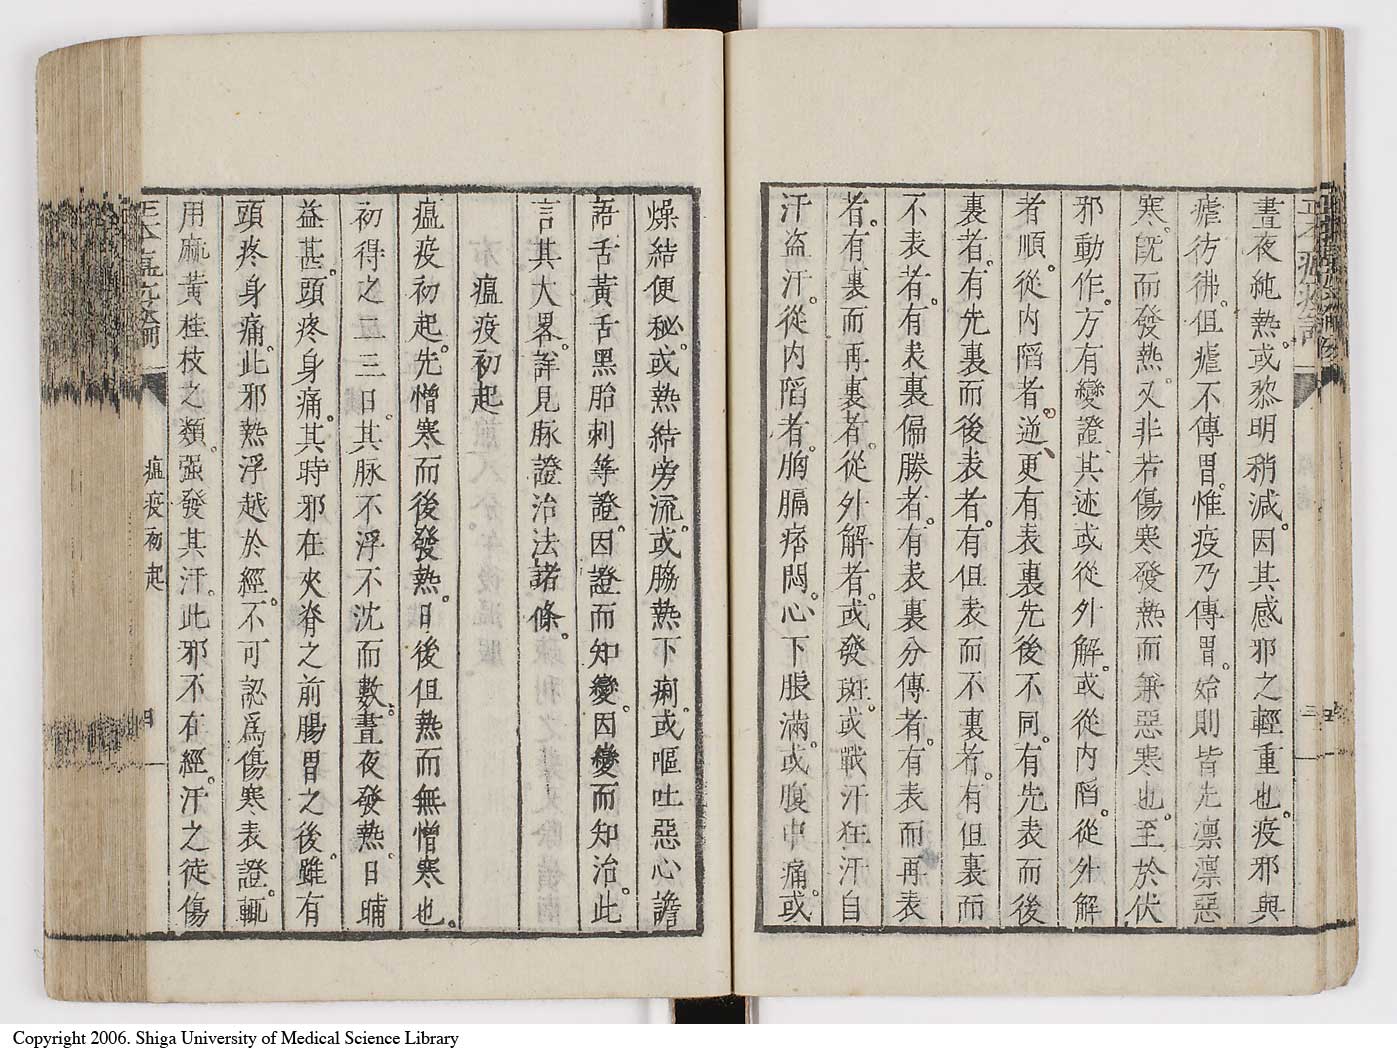 晝夜純熱。或黎明稍減。因其感邪之輕重也。疫邪與
瘧彷彿。但瘧不傳胃。惟疫乃傳胃。始則皆先凛凛惡
寒。旣而發熱。又非若傷寒發熱而兼惡寒也。至於伏
邪動作。方有變證其迹或從外解。或從內陷。從外解
者順。從內陷者。逆。更有表裏先後不同。有先表而後
裏者。有先裏而後表者。有但表而不裏者。有但裏而
不表者。有表裏偏勝者。有表裏分傳者。有表而再表
者。有裏而再裏者。從外解者。或發斑。或戰汗狂汗自
汗盗汗。從内陷者。胸膈痞悶。心下脹滿。或腹中痛。或
燥結便秘。或熱結旁流。或脇熱下痢。或嘔吐惡心譫
語舌黃舌黑胎刺等證。因證而知變。因變而知治。此
言其大畧。詳見脉證治法諸條。
瘟疫初起
瘟疫初起。先憎寒而後發熱。日後但熱而無憎寒也。
初得之二三日。其脉不浮不沈而數。晝夜發熱。日晡
益甚。頭疼身痛。其時邪在夾脊之前腸胃之後。雖有
頭疼身痛。此邪熱浮越於經。不可認爲傷寒表證。輒
用麻黃桂枝之類。强發其汗。此邪不在經。汗之徒傷
瘟疫初起